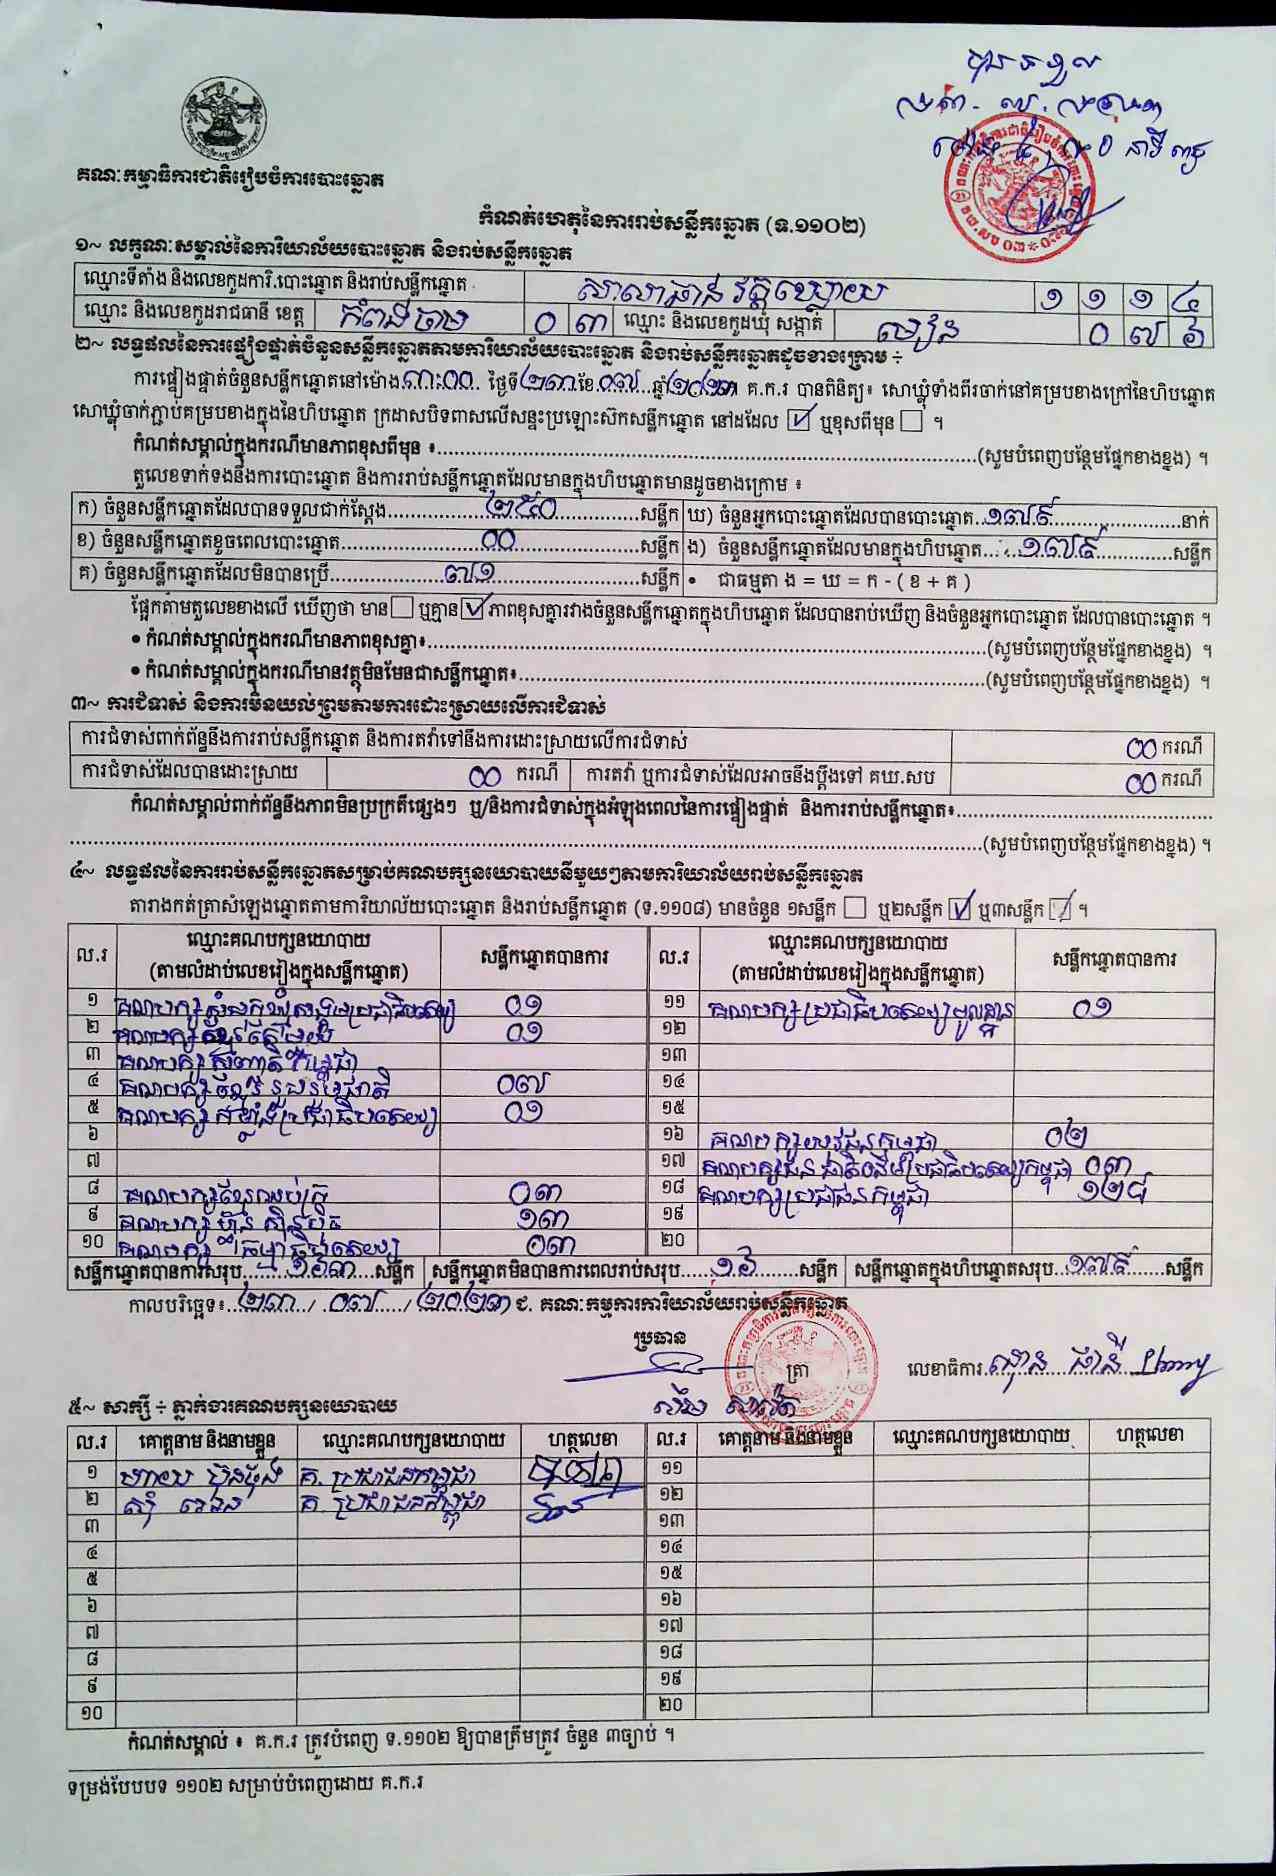 គណៈកម្មាធិការជាតិរៀបចំការបោះឆ្នោត
កំណត់ហេតុនៃការរាប់សន្លឹកឆ្នោត (ទ.១១០២)
១~ លក្ខណៈសម្គាល់នៃការិយាល័យបោះឆ្នោត និងរាប់សន្លឹកឆ្នោត
ឈ្មោះទីតាំង និងលេខកូដការិ.បោះឆ្នោត និងរាប់សន្លឹកឆ្នោត សាលាឆាន់វត្ត ១ ១ ១ ៤
ឈ្មោះ និងលេខកូដរាជធានី ខេត្ត កំពង់ចាម ០ ៣ ឈ្មោះ និងលេខកូដឃុំ សង្កាត់ មៀន ០ ៧ ៦
២~ លទ្ធផលនៃការផ្ទៀងផ្ទាត់ចំនួនសន្លឹកឆ្នោតតាមការិយាល័យបោះឆ្នោត និងរាប់សន្លឹកឆ្នោតដូចខាងក្រោម ÷
ការផ្ទៀងផ្ទាត់ចំនួនសន្លឹកឆ្នោតនៅម៉ោង ៣:០០ ថ្ងៃទី ២៣ ខែ ០៧ ឆ្នាំ ២០២៣ គ.ក.រ បានពិនិត្យ៖ សោឃ្លុំទាំងពីរចាក់នៅគម្របខាងក្រៅនៃហិបឆ្នោត
សោឃ្លុំចាក់ភ្ជាប់គម្របខាងក្នុងនៃហិបឆ្នោត ក្រដាសបិទពាសលើសន្ទះប្រឡោះស៊កសន្លឹកឆ្នោត នៅដដែល ☑ ឬខុសពីមុន ☐ ។
កំណត់សម្គាល់ក្នុងករណីមានភាពខុសពីមុន ៖ (សូមបំពេញបន្ថែមផ្នែកខាងខ្នង) ។
តួលេខទាក់ទងនឹងការបោះឆ្នោត និងការរាប់សន្លឹកឆ្នោតដែលមានក្នុងហិបឆ្នោតមានដូចខាងក្រោម ៖
ក) ចំនួនសន្លឹកឆ្នោតដែលបានទទួលជាក់ស្តែង ២៥០ សន្លឹក ឃ) ចំនួនអ្នកបោះឆ្នោតដែលបានបោះឆ្នោត ១៧៩ នាក់
ខ) ចំនួនសន្លឹកឆ្នោតខូចពេលបោះឆ្នោត ០០ សន្លឹក ង) ចំនួនសន្លឹកឆ្នោតដែលមានក្នុងហិបឆ្នោត ១៧៩ សន្លឹក
គ) ចំនួនសន្លឹកឆ្នោតដែលមិនបានប្រើ ៧១ សន្លឹក • ជាធម្មតា ង = ឃ = ក - ( ខ + គ )
ផ្អែកតាមតួលេខខាងលើ ឃើញថា មាន ☐ ឬគ្មាន ☑ ភាពខុសគ្នារវាងចំនួនសន្លឹកឆ្នោតក្នុងហិបឆ្នោត ដែលបានរាប់ឃើញ និងចំនួនអ្នកបោះឆ្នោត ដែលបានបោះឆ្នោត ។
• កំណត់សម្គាល់ក្នុងករណីមានភាពខុសគ្នា៖ (សូមបំពេញបន្ថែមផ្នែកខាងខ្នង) ។
• កំណត់សម្គាល់ក្នុងករណីមានវត្ថុមិនមែនជាសន្លឹកឆ្នោត៖ (សូមបំពេញបន្ថែមផ្នែកខាងខ្នង) ។
៣~ ការជំទាស់ និងការមិនយល់ព្រមតាមការដោះស្រាយលើការជំទាស់
ការជំទាស់ពាក់ព័ន្ធនឹងការរាប់សន្លឹកឆ្នោត និងការតវ៉ាទៅនឹងការដោះស្រាយលើការជំទាស់ ០០ ករណី
ការជំទាស់ដែលបានដោះស្រាយ ០០ ករណី ការតវ៉ា ឬការជំទាស់ដែលអាចនឹងប្តឹងទៅ គឃ.សប ០០ ករណី
កំណត់សម្គាល់ពាក់ព័ន្ធនឹងភាពមិនប្រក្រតីផ្សេងៗ ឬ/និងការជំទាស់ក្នុងអំឡុងពេលនៃការផ្ទៀងផ្ទាត់ និងការរាប់សន្លឹកឆ្នោត៖
(សូមបំពេញបន្ថែមផ្នែកខាងខ្នង) ។
៤~ លទ្ធផលនៃការរាប់សន្លឹកឆ្នោតសម្រាប់គណបក្សនយោបាយនីមួយៗតាមការិយាល័យរាប់សន្លឹកឆ្នោត
តារាងកត់ត្រាសំឡេងឆ្នោតតាមការិយាល័យបោះឆ្នោត និងរាប់សន្លឹកឆ្នោត (ទ.១១០៨) មានចំនួន ១សន្លឹក ☐ ឬ២សន្លឹក ☑ ឬ៣សន្លឹក ☑ ។
ល.រ ឈ្មោះគណបក្សនយោបាយ (តាមលំដាប់លេខរៀងក្នុងសន្លឹកឆ្នោត) សន្លឹកឆ្នោតបានការ ល.រ ឈ្មោះគណបក្សនយោបាយ (តាមលំដាប់លេខរៀងក្នុងសន្លឹកឆ្នោត) សន្លឹកឆ្នោតបានការ
១ គណបក្សសំបុកឃ្មុំសង្គមប្រជាធិបតេយ្យ ០១ ១១ គណបក្សប្រជាធិបតេយ្យមូលដ្ឋាន ០១
២ គណបក្ស ០១ ១២
៣ គណបក្ស ១៣
៤ គណបក្សខ្មែររួបរួមជាតិ ០៧ ១៤
៥ គណបក្សកម្លាំងប្រជាធិបតេយ្យ ០១ ១៥
៦ ១៦ គណបក្សយុវជនកម្ពុជា ០២
៧ ១៧ គណបក្សជនជាតិដើមប្រជាធិបតេយ្យកម្ពុជា ០៣
៨ គណបក្សខ្មែរអភិរក្ស ០៣ ១៨ គណបក្សប្រជាជនកម្ពុជា ១២៨
៩ គណបក្សហ្វ៊ុនស៊ិនប៉ិច ១៣ ១៩
១០ គណបក្សធម្មាធិបតេយ្យ ០៣ ២០
សន្លឹកឆ្នោតបានការសរុប ១៦៣ សន្លឹក សន្លឹកឆ្នោតមិនបានការពេលរាប់សរុប ១៦ សន្លឹក សន្លឹកឆ្នោតក្នុងហិបឆ្នោតសរុប ១៧៩ សន្លឹក
កាលបរិច្ឆេទ៖ ២៣ / ០៧ / ២០២៣ ជ. គណៈកម្មការការិយាល័យរាប់សន្លឹកឆ្នោត
ប្រធាន
ត្រា
លេខាធិការ
៥~ សាក្សី ÷ ភ្នាក់ងារគណបក្សនយោបាយ
ល.រ គោត្តនាម និងនាមខ្លួន ឈ្មោះគណបក្សនយោបាយ ហត្ថលេខា ល.រ គោត្តនាម និងនាមខ្លួន ឈ្មោះគណបក្សនយោបាយ ហត្ថលេខា
១ គ. ប្រជាជនកម្ពុជា ១១
២ គ. ប្រជាជនកម្ពុជា ១២
៣ ១៣
៤ ១៤
៥ ១៥
៦ ១៦
៧ ១៧
៨ ១៨
៩ ១៩
១០ ២០
កំណត់សម្គាល់ ៖ គ.ក.រ ត្រូវបំពេញ ទ.១១០២ ឱ្យបានត្រឹមត្រូវ ចំនួន ៣ច្បាប់ ។
ទម្រង់បែបបទ ១១០២ សម្រាប់បំពេញដោយ គ.ក.រ